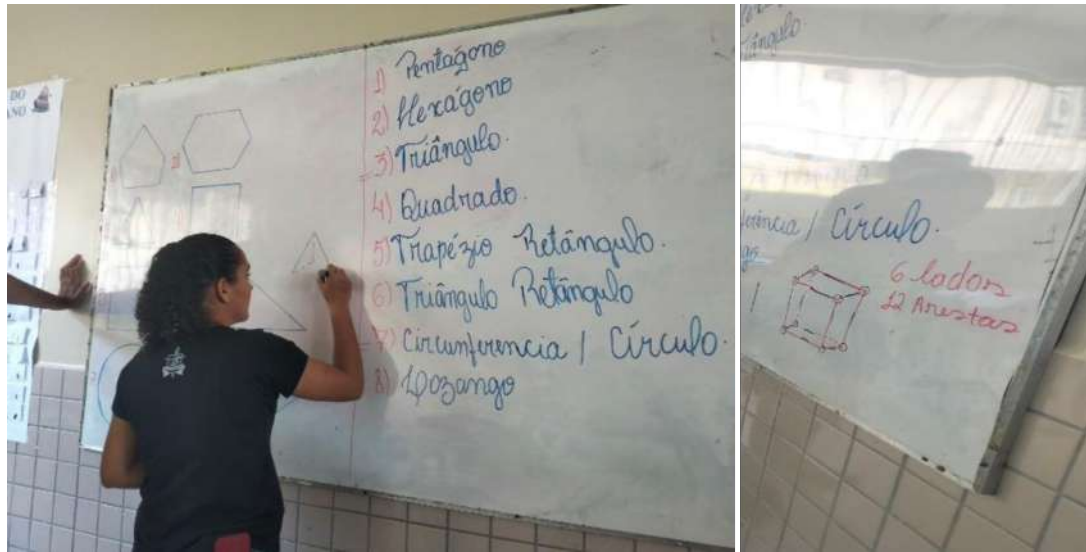 DO
1) Pentágono
2) Hexágono
3) Triângulo.
4) Quadrado.
5) Trapézio Retângulo.
6) Triângulo Retângulo
7) Circunferencia / Círculo.
8) Lozango
/ Círculo.
6 lados
12 Arestas